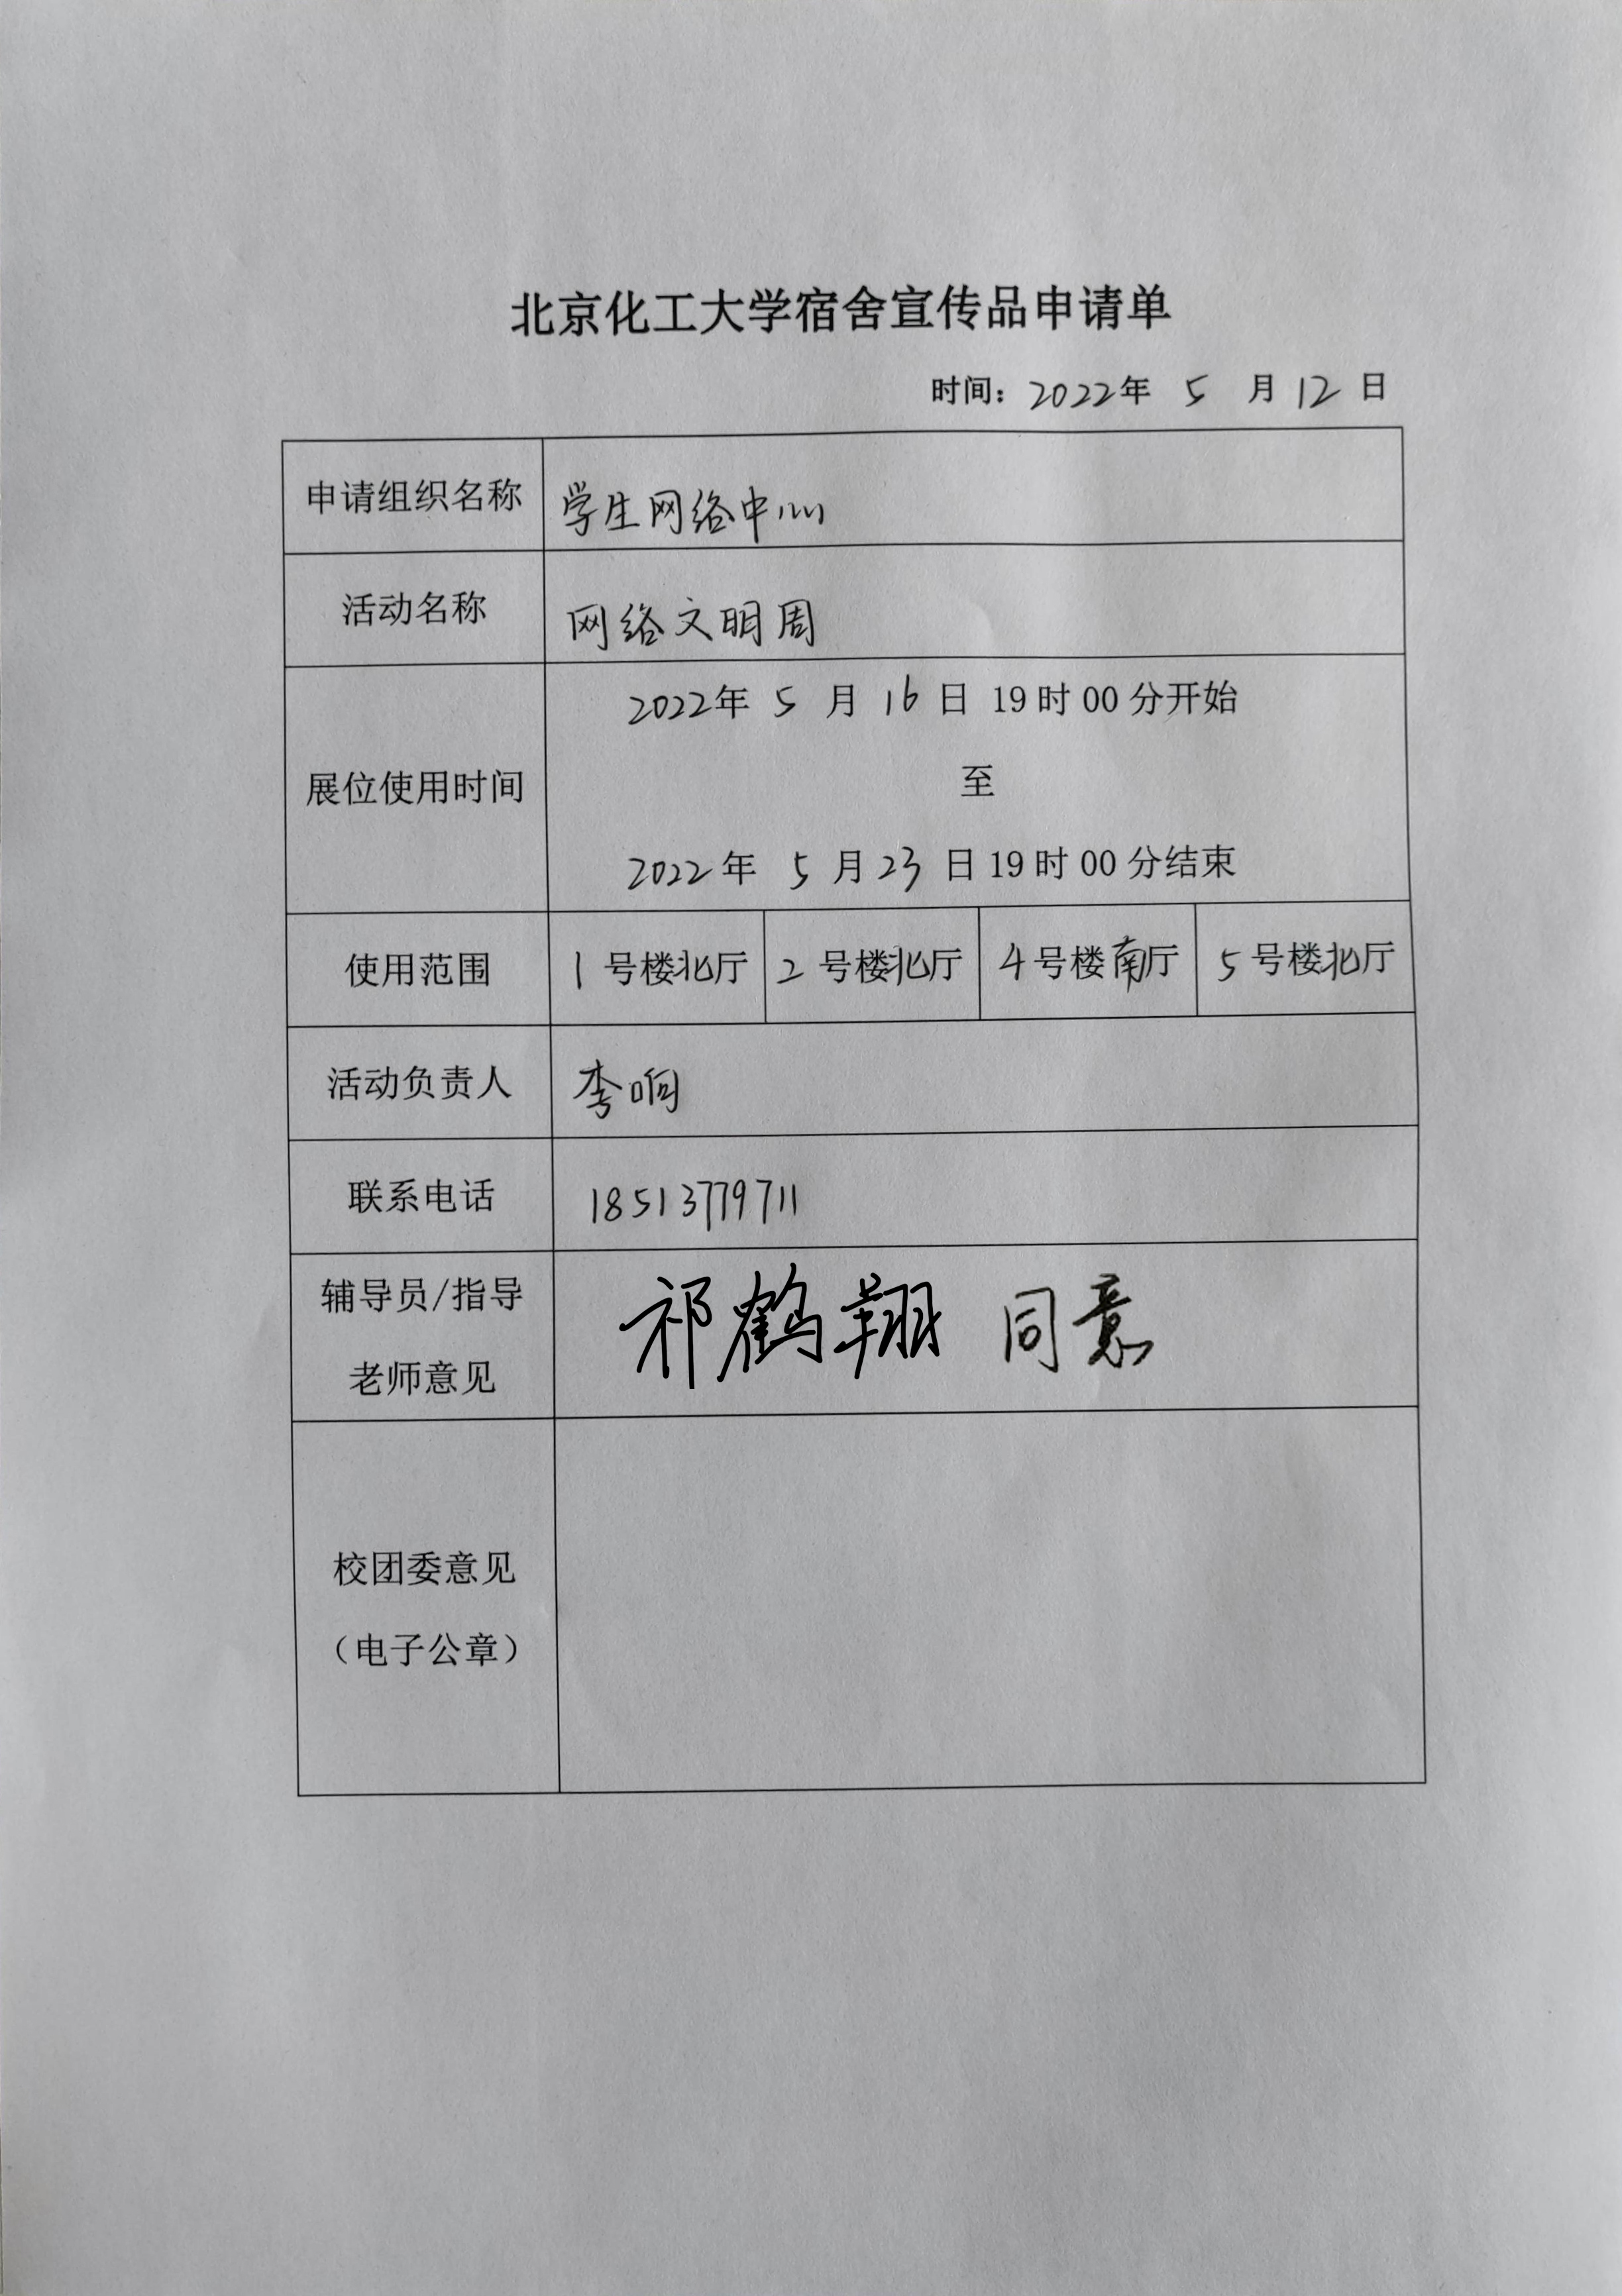 北京化工大学宿舍宣传品申请单
时间：2022年 5 月 12 日
申请组织名称 学生网络中心
活动名称 网络文明周
展位使用时间
2022年 5 月 16 日 19时00分开始
至
2022年 5 月 23 日 19时00分结束
使用范围 1号楼北厅 2号楼北厅 4号楼南厅 5号楼北厅
活动负责人 李响
联系电话 18513779711
辅导员/指导
老师意见
祁鹤翔 同意
校团委意见
（电子公章）